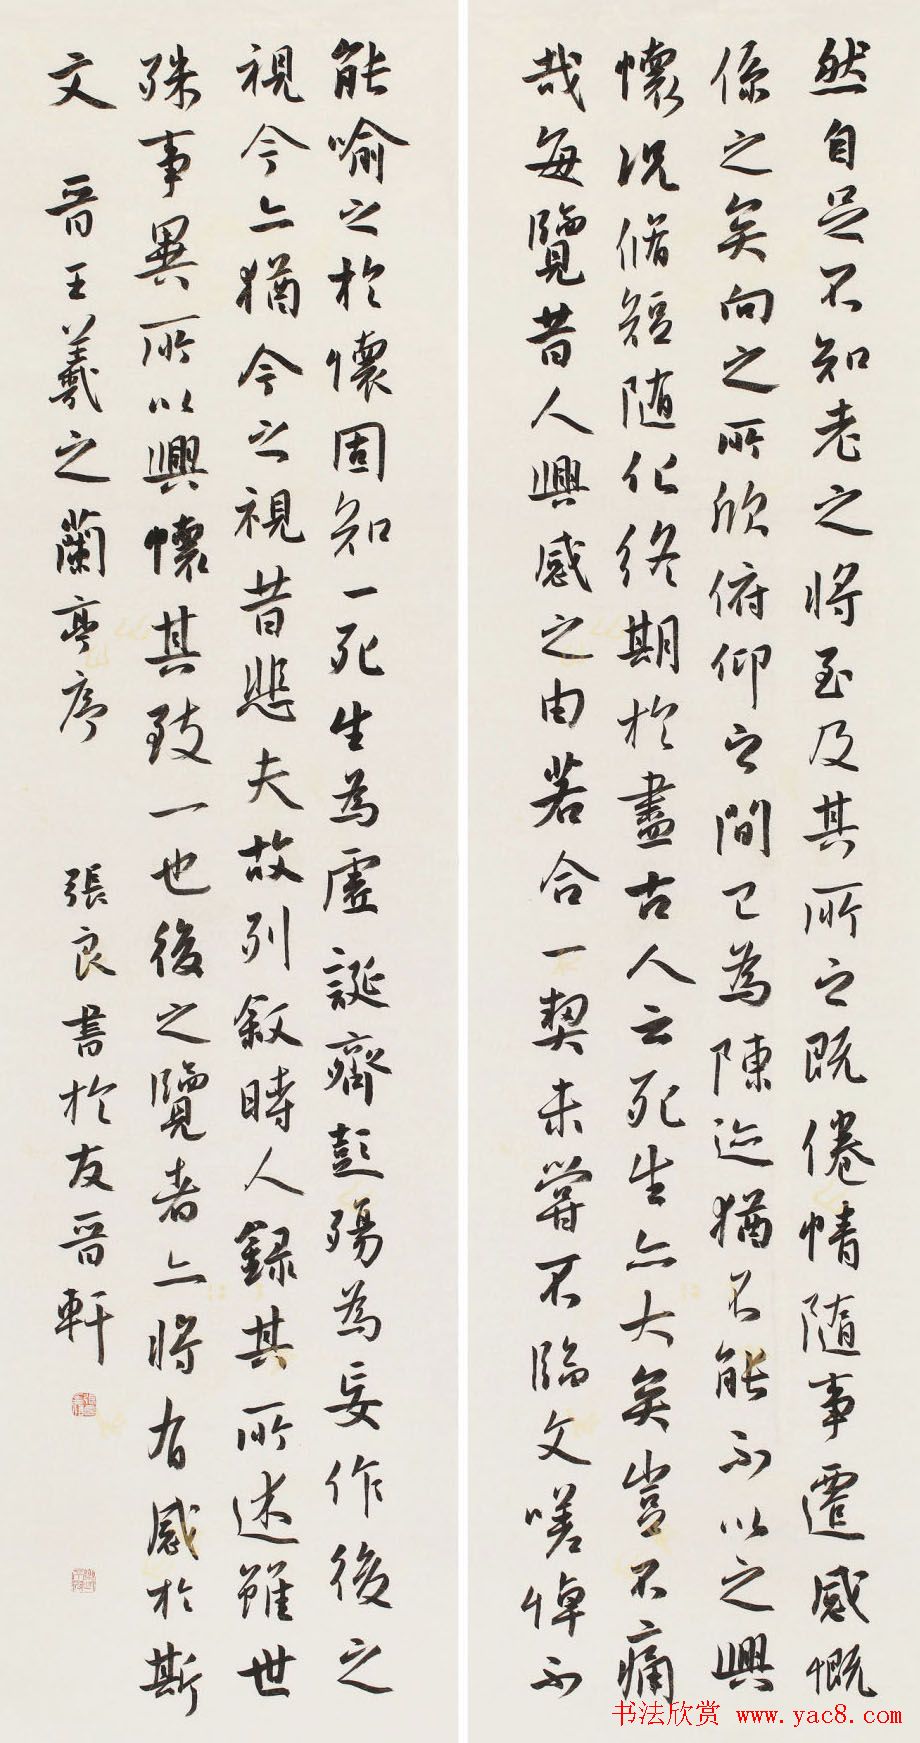 然自足不知老之將至及其所之既倦情隨事遷感慨
係之矣向之所欣俯仰之間已為陳迹猶不能不以之興
懷況脩短随化終期於盡古人云死生亦大矣豈不痛
哉每覽昔人興感之由若合一契未嘗不臨文嗟悼不
能喻之於懷固知一死生為虛誕齊彭殤為妄作後之
視今亦猶今之視昔悲夫故列敘時人錄其所述雖世
殊事異所以興懷其致一也後之覽者亦將有感於斯
文 晉王羲之蘭亭序 張良書於友晉軒
书法欣赏 www.yac8.com